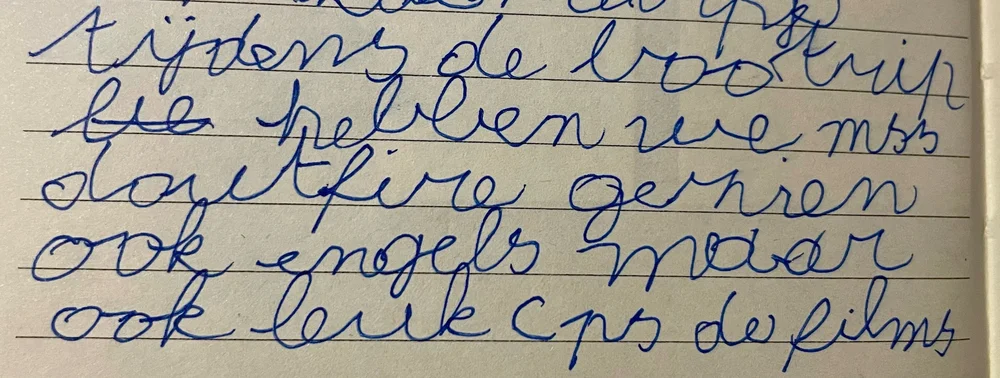 tijdens de bootrip
hebben we mss
doutfire gezien
ook engels maar
ook leuk (ps de films